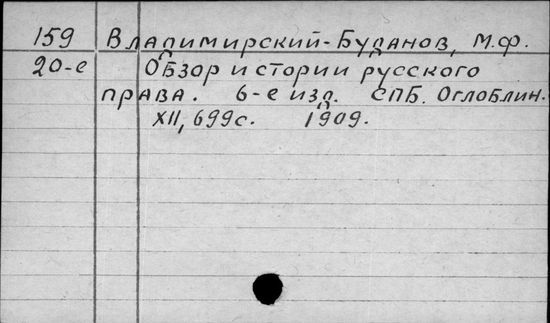 159 Владимирский-Буданов, М.Ф.
20-е Обзор истории русского
права. 6-е изд. СПБ. Оглоблин.
XII, 699с. 1909.